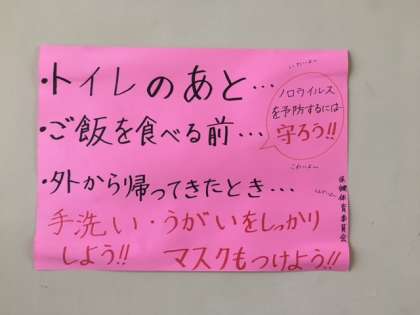 ・トイレのあと…
・ご飯を食べる前…
・外から帰ってきたとき…
手洗い・うがいをしっかり
しよう!! マスクもつけよう!!
ノロウイルス
を予防するには
守ろう!!
こわいよ〜
保健体育委員会